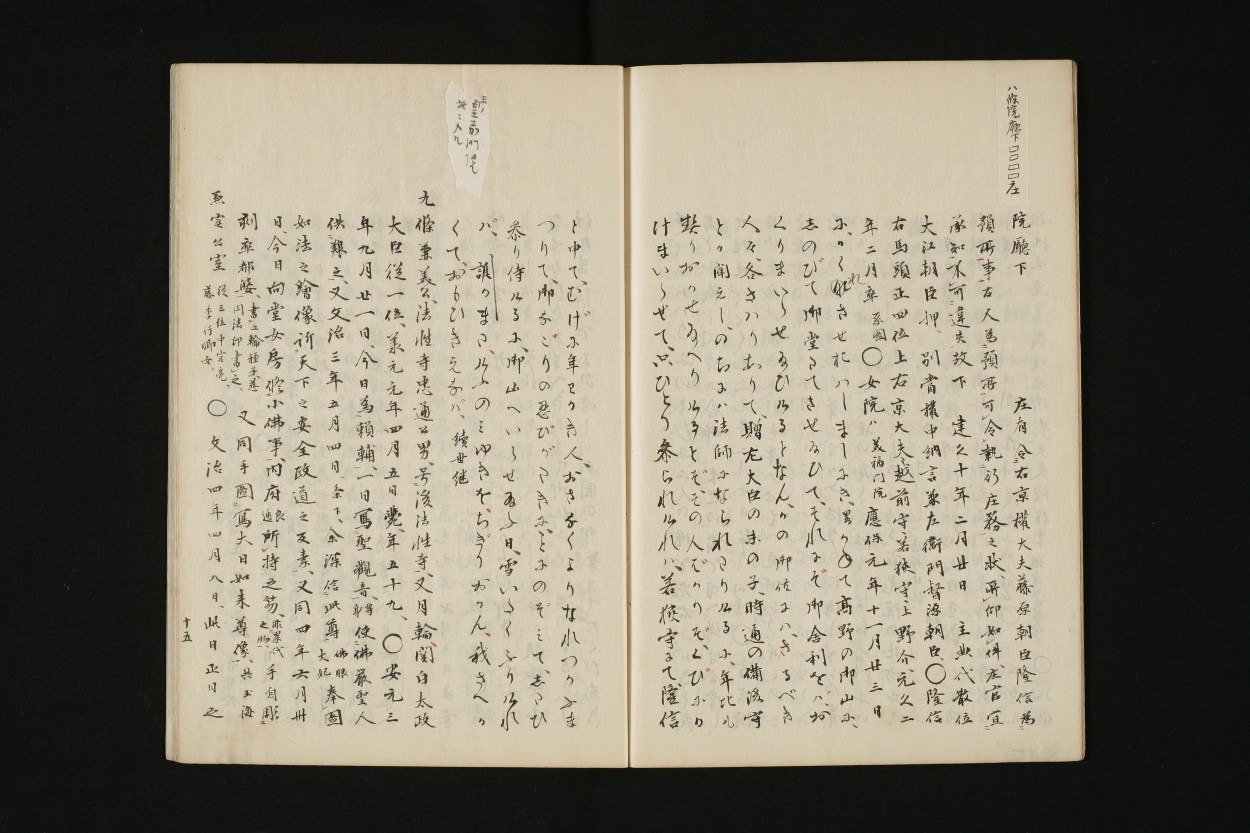 八條院廳下□□□□庄
院廳下　庄有令右京權大夫藤原朝臣隆信為
預所事右人為預所可令執行庄務之狀所仰如件庄官宜
承知不可違失故下　建久十年二月廿日　主典代散位
大江朝臣押　別當權中納言兼左衛門督源朝臣〇隆信
右馬頭正四位上右京大夫越前守若狹守上野介元久二
年二月卒系圖〇女院ハ美福門院應保元年十一月廿三日
にかくれさせおハしましにき、かねて高野の御山に、
しのびて御堂たてさせ給ひて、それにぞ御舍利をバ、お
くりまいらせ給ひけるとなん、かの御供にハ、さるべき
人々、各さハりありて、贈左大臣の末の子、時通の備後守
とか聞えしのちにハ法師になられたりけるに、年比も
契りおかせ給へりけるとぞ、その人ばかりぞ、くびにか
けまいらせて、只ひとり參られけれバ、若狹守にて隆信
と申て、むげに年わかき人、おさなくよりなれつかふま
つりて、御なごりの忍びがたさに、とにのぞみて、したひ
參り侍けるに、御山へいらせ給ふ日、雪いたくふりけれ
バ、誰かまた、けふのみゆきを、ちぎりおかん、我さへか
くて、おもひきえなバ、續世継
九條兼義公、法性寺忠通公男、号後法性寺、又月輪、関白太政
大臣從一位、承元元年四月五日薨、年五十九、〇安元三
年九月廿一日、今日為頼輔、一日寫聖觀音、使佛嚴聖人
供養之、又文治三年五月四日条下、余深信此尊佛眼大妃奉圖
如法之繪像、祈天下之安全政道之反素、又同四年六月卅
日、今日向堂女房修小佛事、内府良通所持之笏、手自彫
刻率都婆、書五輪種子、又同手圖寫大日如来尊像、共玉海
兼実公室從三位中宮亮藤季行卿女、〇文治四年四月八日、此日正日之
十五